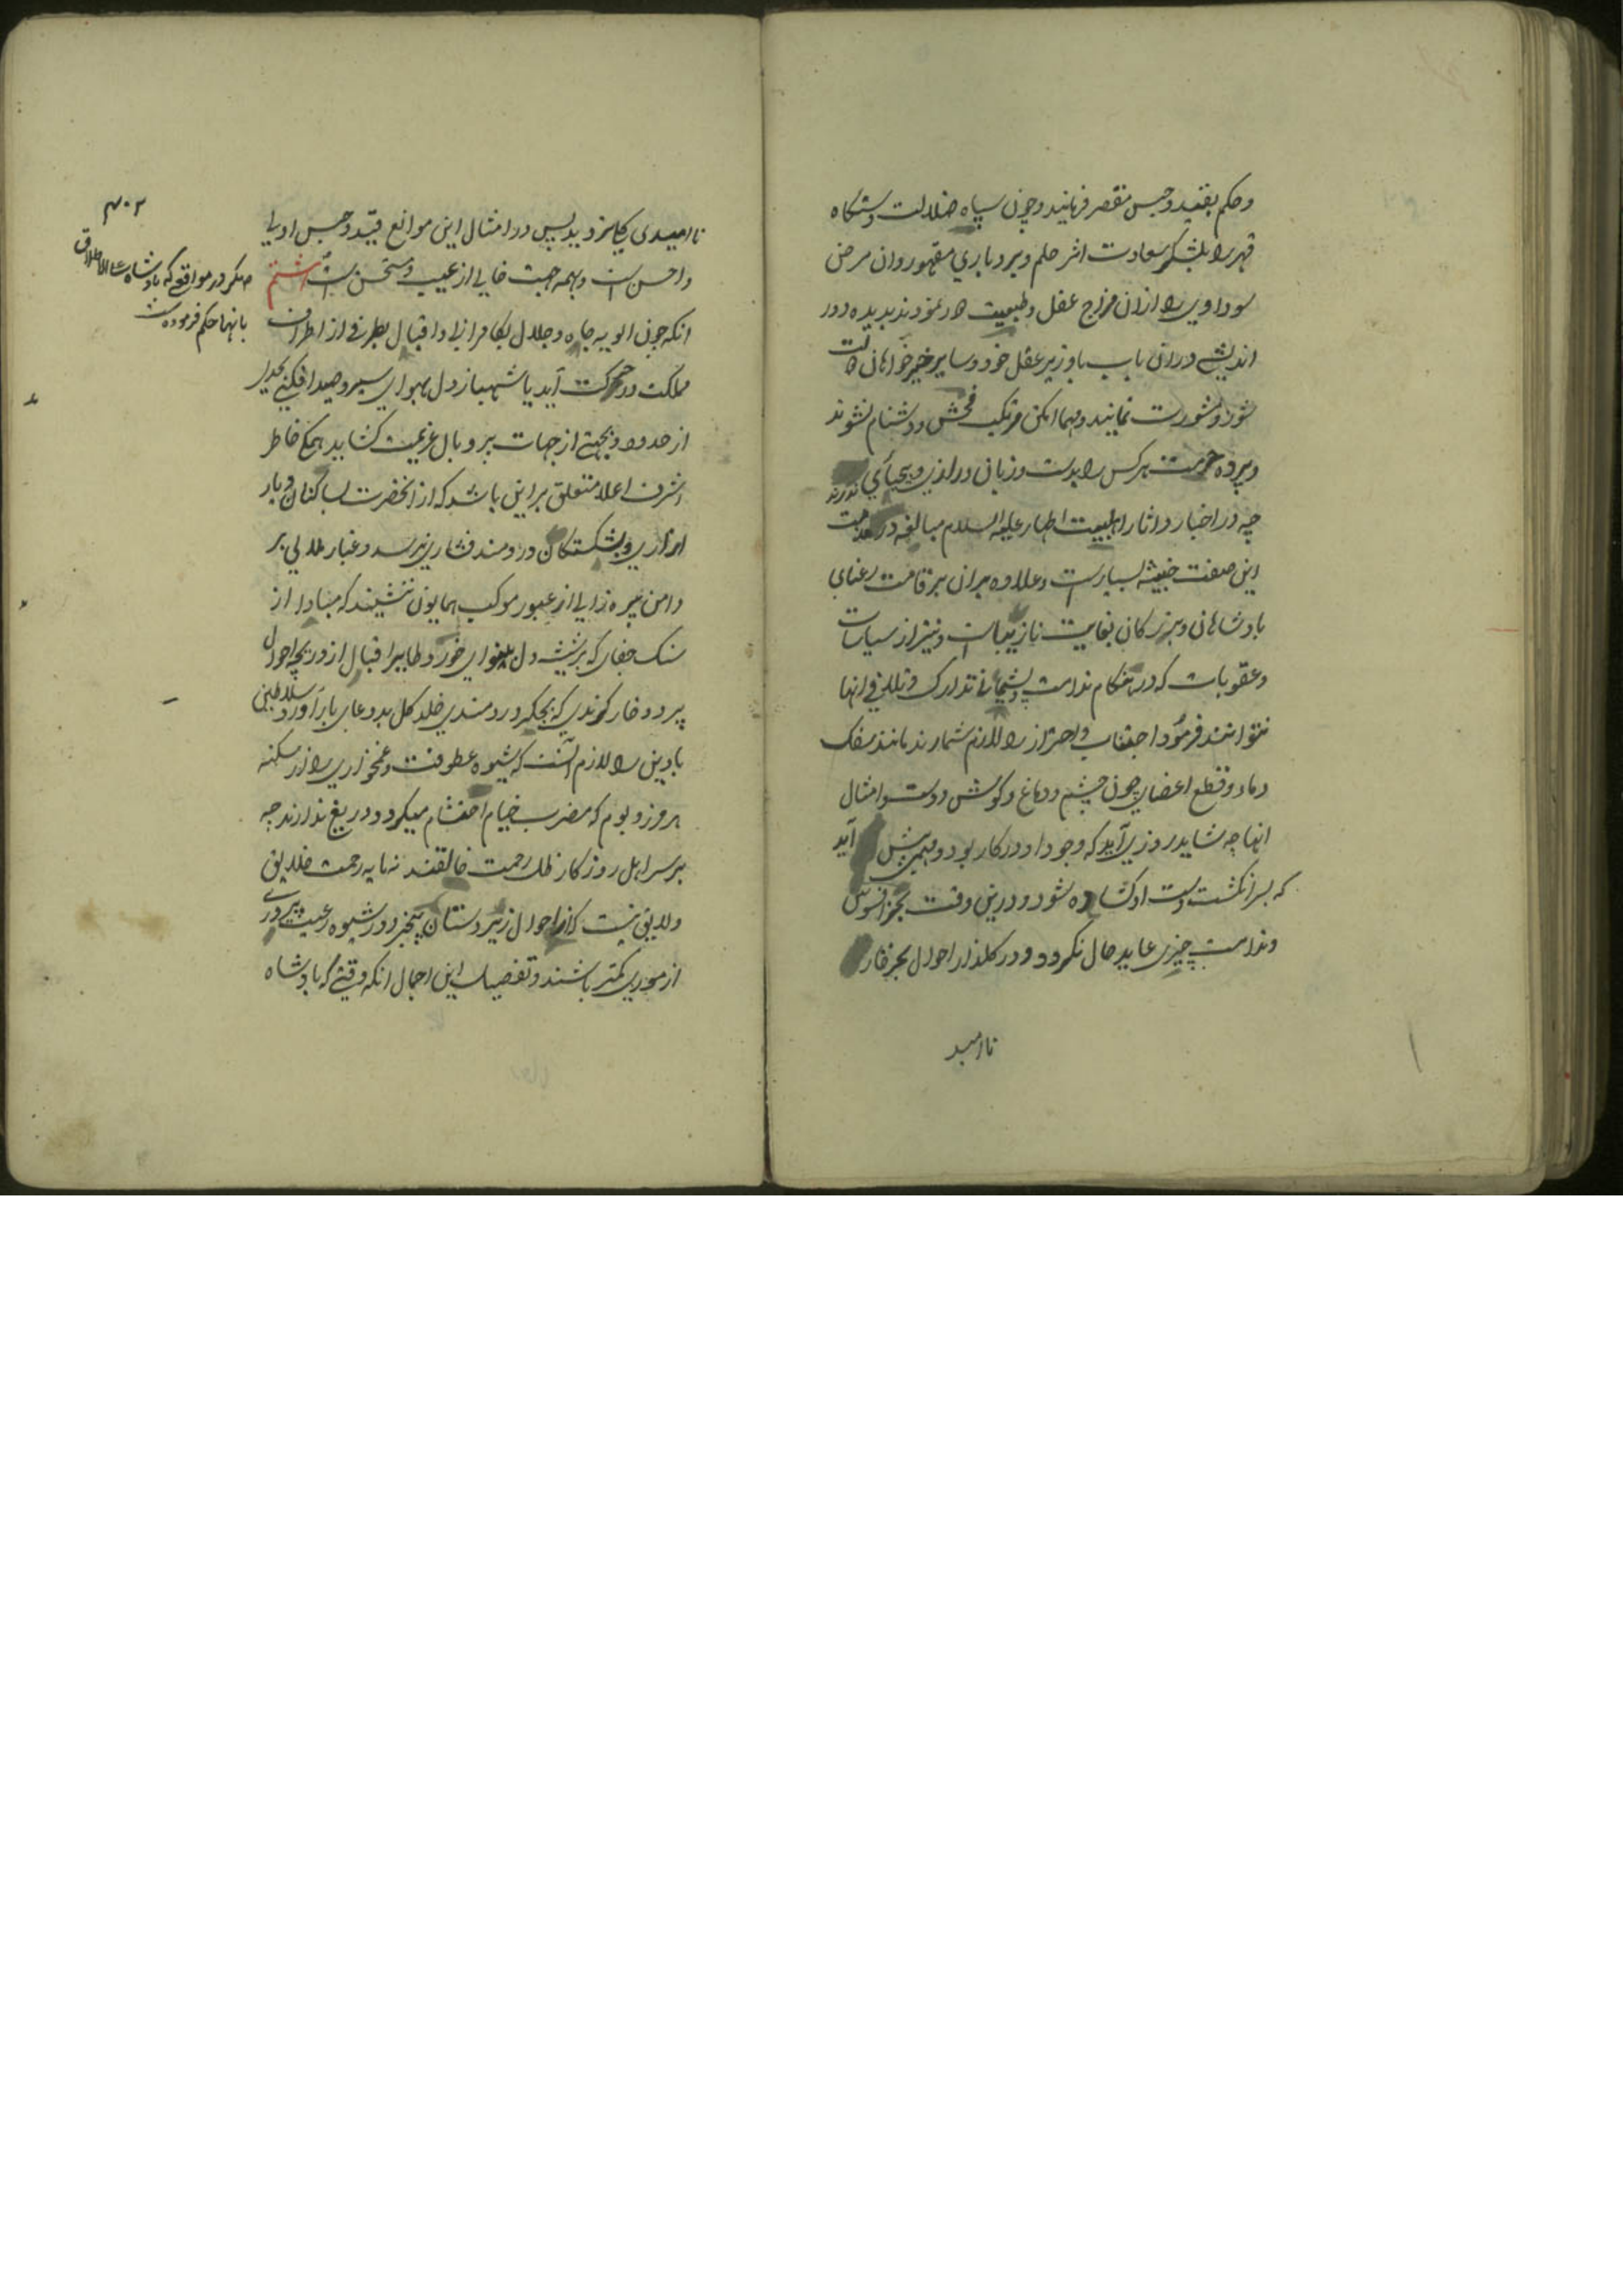 و حکم بقید و حبس مقصر فرمایند و چون سپاه ضلالت دستگاه
قهر را بلشکر سعادت اثر حلم و بردباری مقهور و ان مرض
سوداوی را از ان مزاج عقل و طبیعت دور نمودند بدیده دور
اندیشی در ان باب با وزیر عقل خود و سایر خیرخواهان دولت
شور و مشورت نمایند و مهما امکن مرتکب فحش و دشنام نشوند
و پرده حرمت هر کس را بدست و زبان درازی و بیحیائی ندرند
چه در اخبار و اثار اهلبیت اطهار علیهم السلام مبالغه در مذمت
این صفت خبیثه بسیارست و علاوه بران بر قامت رعنای
پادشاهان و بزرکان بغایت نازیباست و نیز از سیاسات
و عقوبات که در هنکام ندامت و پشیمانی تدارک و تلافی انها
نتوانند فرمود اجتناب و احتراز را لازم شمارند مانند سفک
دماء و قطع اعضای چون چشم و دماغ و کوش و دست و امثال
انها چه شاید روزی آید که وجود او در کار بود و مهمی پیش آید
که بسر انکشت دست او کشاده شود و درین وقت بجز افسوس
و ندامت چیزی عاید حال نکردد و در کلذار احوال بجز خار
ناامید
ناامیدی کیاهی نروید پس در امثال این مواقع قید و حبس اولی
و احسن است و بهمه جهت خالی از عیب و مستحسن است هشتم
انکه چون الویه جاه و جلال بکامرانی و اقبال بطرفی از اطراف
مملکت در حرکت آید یا شهباز دل بهوای سیر و صید افکنی بحدی
از حدود و بجهتی از جهات پر و بال عزیمت کشاید همکی خاطر
اشرف اعلا متعلق بر این باشد که از انحضرت بساکنان دیار
و شکستکان دردمند فشاری نرسد و غبار ملالی بر
دامن تیره از عبور موکب همایون ننشیند که مبادا از
سنک جفای که بر شیشه دل بینوای خورد طایر اقبال از دریچه احوال
پرد و خار کزندی که بجکر دردمندی خلد کل بددعای بار آورد سلاطین
با دین را لازم آنست که شیوه عطوفت و غمخواری را از سکنه
هر مرز و بوم که مضرب خیام احتشام میکردد دریغ ندارند چه
بر سر اهل روزکار ظل رحمت خالقند نه مایه زحمت خلایق
و لایق نیست که از احوال زیردستان بیخبر و در شیوه رعیت پروری
از موری کمتر باشند و تفصیل این اجمال انکه وقتی که پادشاه
۳۰۲
مکر در مواقعی که پادشاه علی الاطلاق
بانها حکم فرموده است